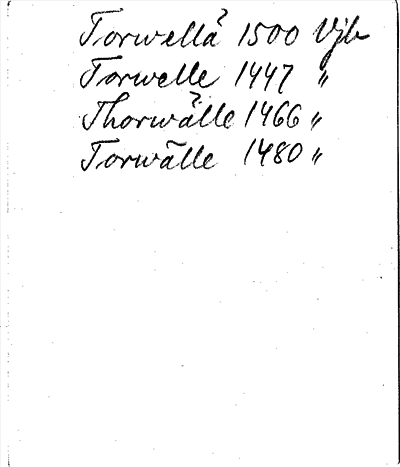 Torwella? 1500 Vjb
Torwelle 1447 "
Thorwälle 1466 "
Torwälle 1480 "